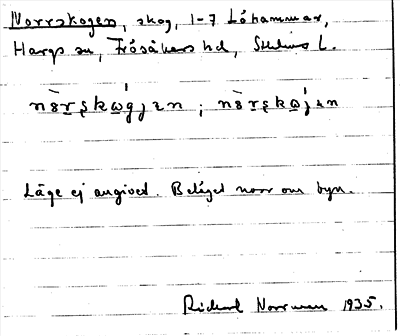 Norrskogen, skog, 1-7 Löhammar,
Hargs sn, Frösåkers hd, Sthlms L.
Läge ej angived. Beläget norr om byn.
Rickard Norrman 1935.